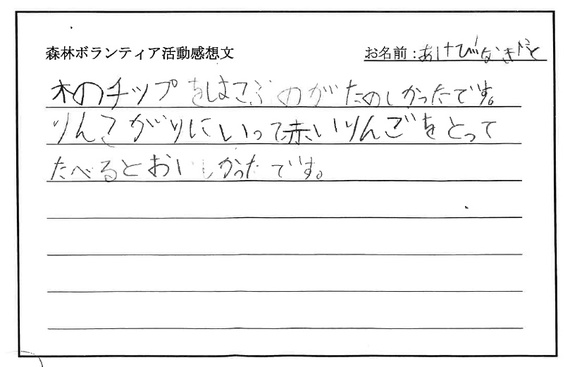 森林ボランティア活動感想文
お名前:あけびなぎさと
木のチップをはこぶのがたのしかったです。
りんごがりにいって赤いりんごをとって
たべるとおいしかったです。